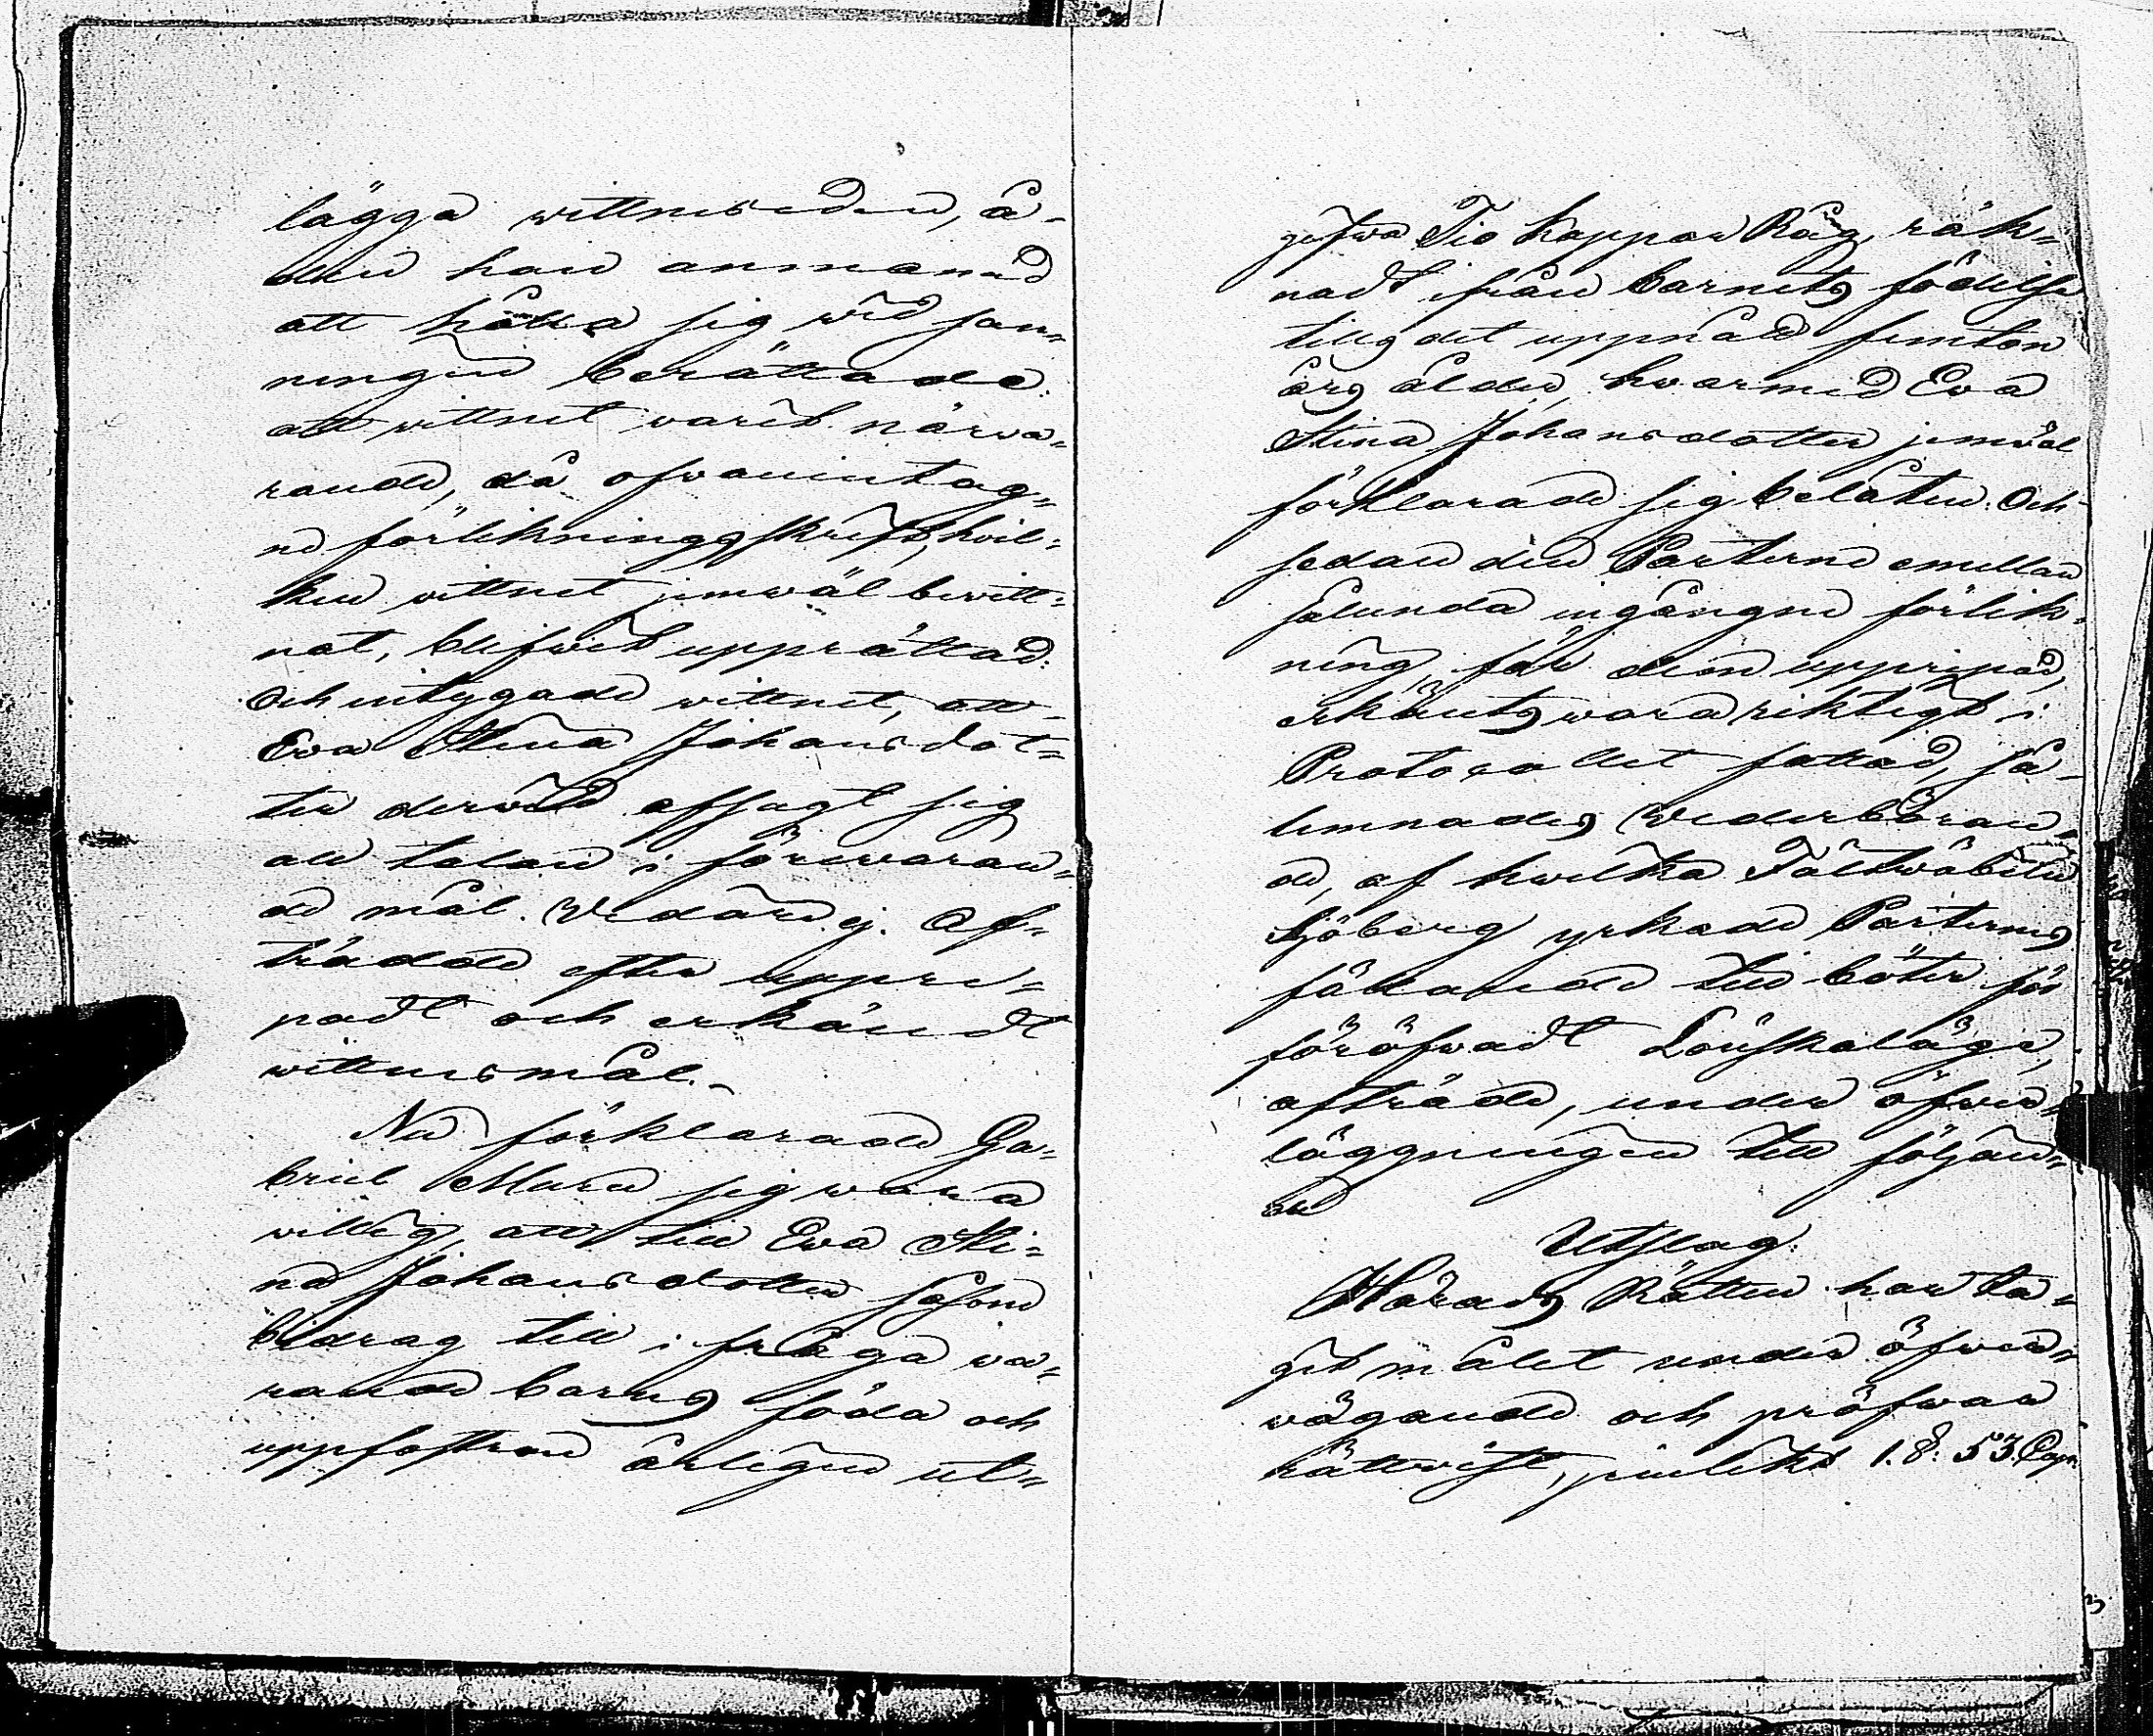 lägga wittneseden, å-
den han anmanad
att hålla sig wid san-
ningen berättade:
att vittnet varit närva-
rande, då ofwanintag-
ne förlikningsskrift, hvil-
ken vittnet jemwäl bevitt-
nat, blifwit upprättad:
Och intygade wittnet, att
Eva Stina Johansdot-
ter derwid afsagt sig
all talan i förevaran-
de mål. Vidare ej. Af-
trädde efter uppre-
padt och erkändt
wittnesmål.-
Nu förklarade Ga-
briel Murn sig wara
willig, att till Eva Sti-
na Johansdotter såsom
bidrag till i fråga wa-
rande barns föda och
uppfostran årligen ut-
gifwa Tio kappar Råg, räk-
nadt ifrån barnets födelse
tills det uppnått femton
års ålder, hvarmed Eva
Stina Johansdotter jemwäl
förklarade sig belåten. Och
sedan den Parterne emellan
sålunda ingångne förlik-
ning, för dem upprepad,
erkänts wara riktigt i
Protocollet fattad, så
lemnades Wederböran-
de, af hwilka Fältwäbeln
Sjöberg yrkade Parternes
fällande till böter för
föröfwadt Lönskaläge,
afträde, under öfwer-
läggningen till följan-
de
Utslag:
Härads Rätten har ta-
git målet under öfwer-
wägande och pröfwar
rättvist, jemlikt 1. §. 53. Cap.